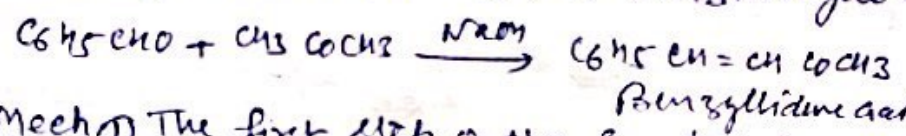 C6H5CHO + CH3COCH3 NaOH → C6H5CH=CHCOCH3
Benzyllidene
Mech The first